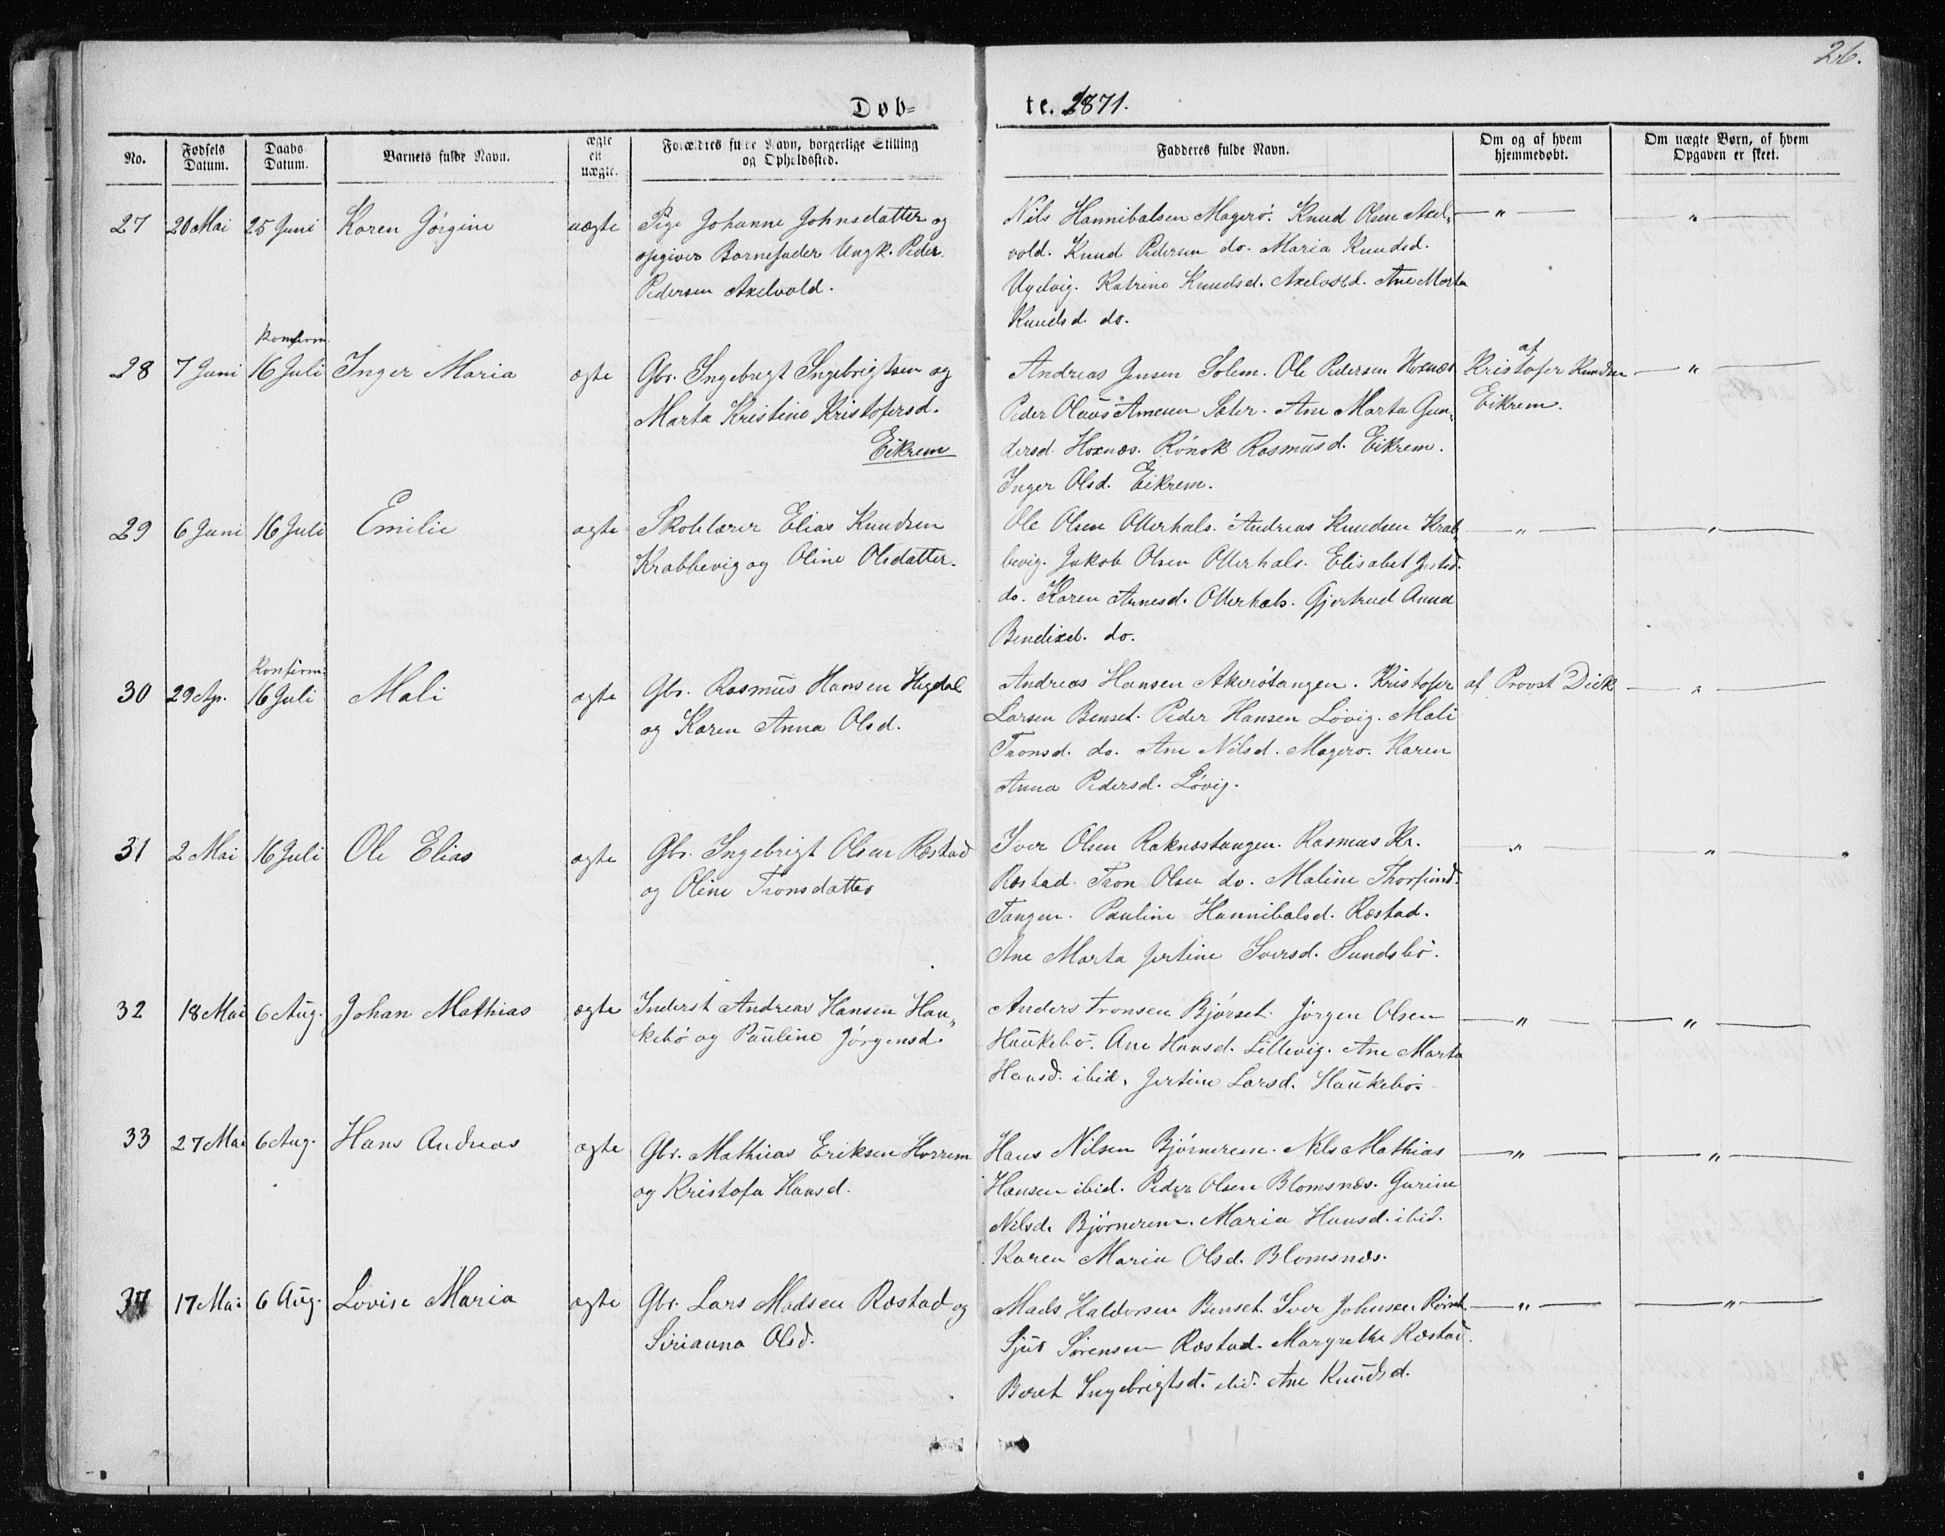 26.
Døb=
te. 1871.
No.
Fødsels Datum.
Daabs Datum.
Barnets fulde Navn.
ægte ell. uægte.
Forældres fulde Navn, borgerlige Stilling og Opholdssted.
Fadderes fulde Navn.
Om og af hvem hjemmedøbt.
Om uægte Børn, af hvem Opgaven er skeet.
27 20 Mai 25 Juni Karen Jørgine uægte Pige Johanne Johnsdatter og
opgiver Barnefader Ungk. Peder
Pedersen Axelvold.
Nils Hannibalsen Magerø. Knud Olsen Axel=
vold. Knud Pedersen do. Maria Knudsd.
Ugelvig. Katrine Knudsd. Axelvold. Ane Marta
Knudsd. do.
— " — — " —
Konfirm.
28 7 Juni 16 Juli Inger Maria ægte Gbr. Ingebrigt Ingebrigtsen og
Marta Kristine Kristofersd.
Eikrem
Andreas Jensen Solem. Ole Pedersen Hoxnæs
Peder Olaus Amesen Sæter. Ane Marta Gun=
dersd. Hoxnæs. Rønok Rasmusd. Eikrem.
Inger Olsd. Eikrem.
af
Kristofer Knudsen
Eikrem.
— " —
29 6 Juni 16 Juli Emilie ægte Skolelærer Elias Knudsen
Krabbevig og Oline Olsdatter.
Ole Olsen Otterhals. Andreas Knudsen Krab=
bevig. Jakob Olsen Otterhals. Elisabet
do. Karen Arnesd. Otterhals. Gjertrud Anna
Bendixd. do.
— " — — " —
Konfirm.
30 29 Ap. 16 Juli Mali ægte Gbr. Rasmus Hansen Hegdal
og Karen Anna Olsd.
Andreas Hansen Akerøtangen. Kristofer
Larsen Benset. Peder Hansen Løvig. Mali
Tronsd. do. Ane Nilsd. Magerø. Karen
Anna Pedersd. Løvig.
af Provst Dick
— " —
31 2 Mai 16 Juli Ole Elias ægte Gbr. Ingebrigt Olsen Ræstad
og Oline Tronsdatter
Iver Olsen Raknæstangen. Rasmus Kr.
Ræstad. Tron Olsen do. Maline Thorfind.
Tangen. Pauline Hannibalsd. Ræstad.
Ane Marta Jertine Iversd. Sundsbø.
" — — " —
32 18 Mai 6 Aug. Johan Mathias ægte Inderst Andreas Hansen Hau=
kebø og Pauline Jørgensd.
Anders Tronsen Bjørset. Jørgen Olsen
Haukebø. Ane Hansd. Lillevig. Ane Marta
Hansd. ibid. Jertine Larsd. Haukebø.
— " — — " —
33 27 Mai 6 Aug. Hans Andreas ægte Gbr. Mathias Eriksen Horrem
og Kristofa Hansd.
Hans Nilsen Bjørnerem. Nils Mathias
Hansen ibid. Peder Olsen Blomsnæs. Gurine
Nilsd. Bjørnerem. Maria Hansd. ibid.
Karen Maria Olsd. Blomsnæs.
— " — — " —
34 17 Mai 6 Aug. Lovise Maria ægte Gbr. Lars Madsen Ræstad og
Sirianna Olsd.
Mads Haldorsen Benset. Iver Johnsen
Sjur Sørensen Ræstad. Margrethe Ræstad.
Beret Ingebrigtsd. ibid. Ane Knudsd.
— " — — " —